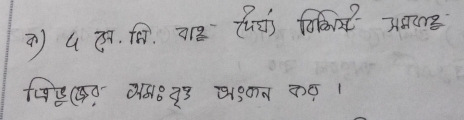 ক) ৫ সে. মি. বাহু দৈর্ঘ্য বিশিষ্ট সমবাহু
ত্রিভুজের অন্তঃবৃত্ত অংকন কর ।